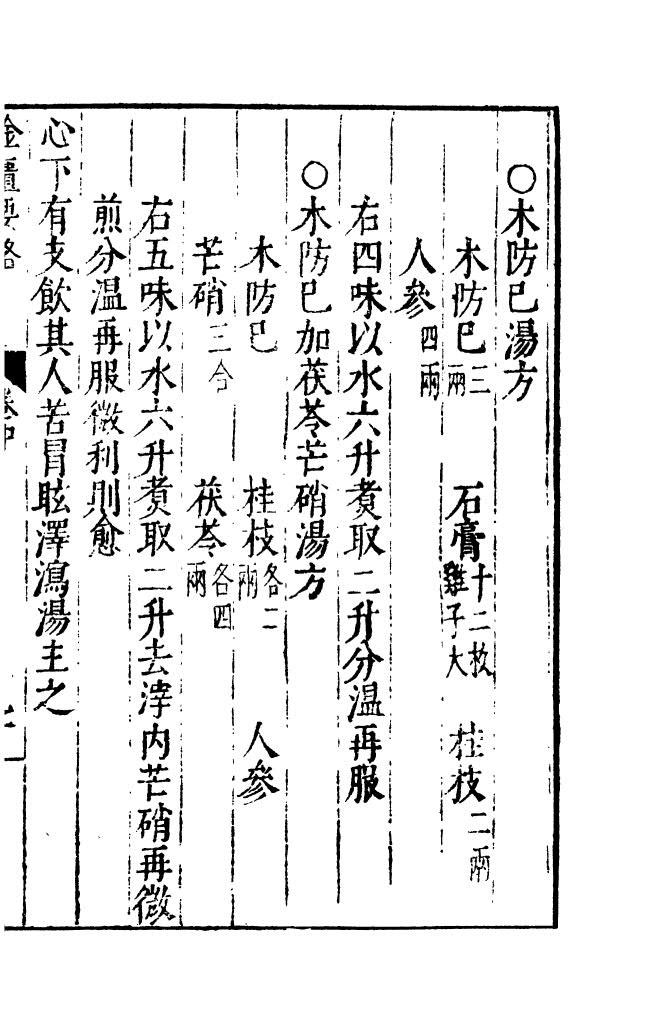 ○木防已湯方
木防已三兩　石膏十二枚雞子大　桂枝二兩
人參四兩
右四味以水六升煑取二升分温再服
○木防已加茯苓芒硝湯方
木防已　桂枝各二兩　人參
芒硝三合　茯苓各四兩
右五味以水六升煑取二升去滓内芒硝再微
煎分温再服微利則愈
心下有支飲其人苦冒眩澤瀉湯主之
金匱要略　卷中